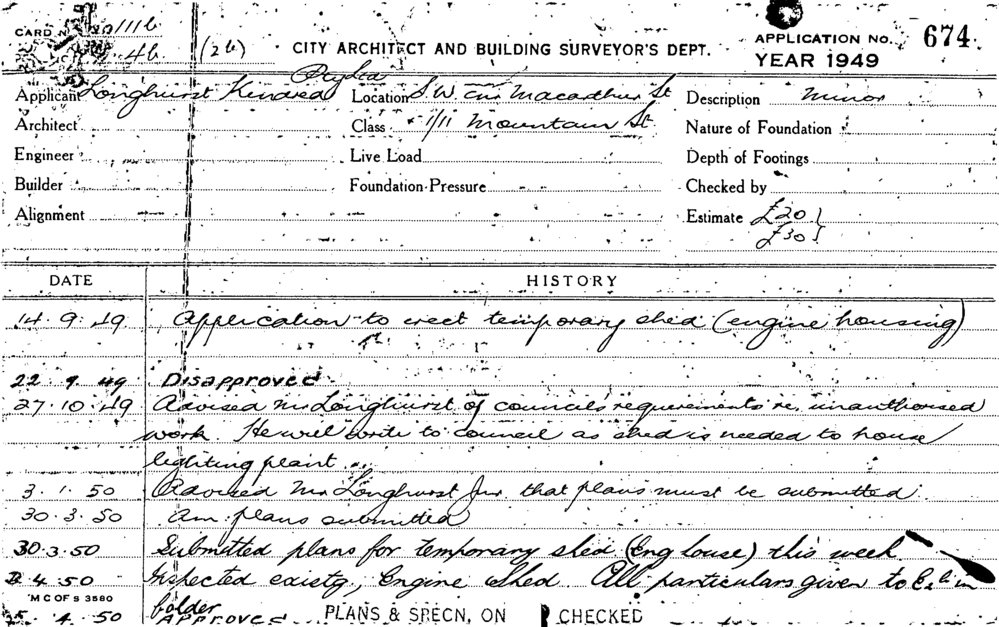 CARD N 111b
4b (2b) CITY ARCHITECT AND BUILDING SURVEYOR'S DEPT. APPLICATION No. 674
YEAR 1949
Applicant Longhurst Location S.W. cnr Macarthur St Description Minor
Architect Class 1/11 Mountain St. Nature of Foundation
Engineer Live Load Depth of Footings
Builder Foundation Pressure Checked by
Alignment Estimate £20
£30
DATE HISTORY
14.9.49 Application to erect temporary shed (engine housing)
22 9 49 Disapproved
27.10.49 Advised Mr Longhurst of councils requirements re. unauthorised
work. He will write to council as shed is needed to house
lighting plant.
3.1.50 Advised Mr Longhurst Jnr. that plans must be submitted.
30.3.50 Am. plans submitted
30.3.50 Submitted plans for temporary shed (Eng house) this week
4.50 Inspected existg, Engine Shed. All particulars given to in
M C OF S 3580 folder
5.4.50 APPROVED PLANS & SPECN, ON CHECKED